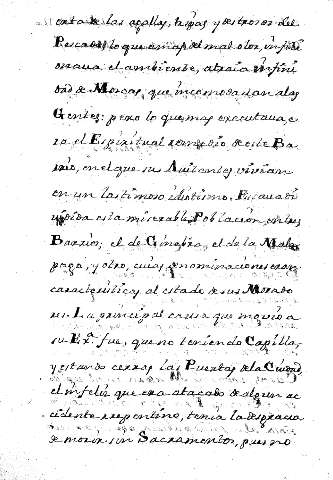 erta de las agallas, tripas, y destrozos del
Pescado, lo que a mas del mal olor, infici
onava el ambiente, atraia infini
dad de Moscas, que incomodavan a las
Gentes: pero lo que mas executava, e
ra el Espiritual remedio de este Ba
rrio, en el que sus Avitantes vivian
en un lastimoso idiotismo. Estava di
vidida esta miserable Poblacion, en tres
Barrios; el de Ginebra, el de la Mala
paga, y otro, cuias denominaciones eran
caracteristicas al estado de sus Morado
res. La principal causa que movió a
su Ex.ª fue, que no teniendo Capilla,
y estando cerradas las Puertas de la Ciudad,
el infeliz que era atacado de algun ac
cidente repentino, tenia la desgracia
de morir sin Sacramentos, pues no